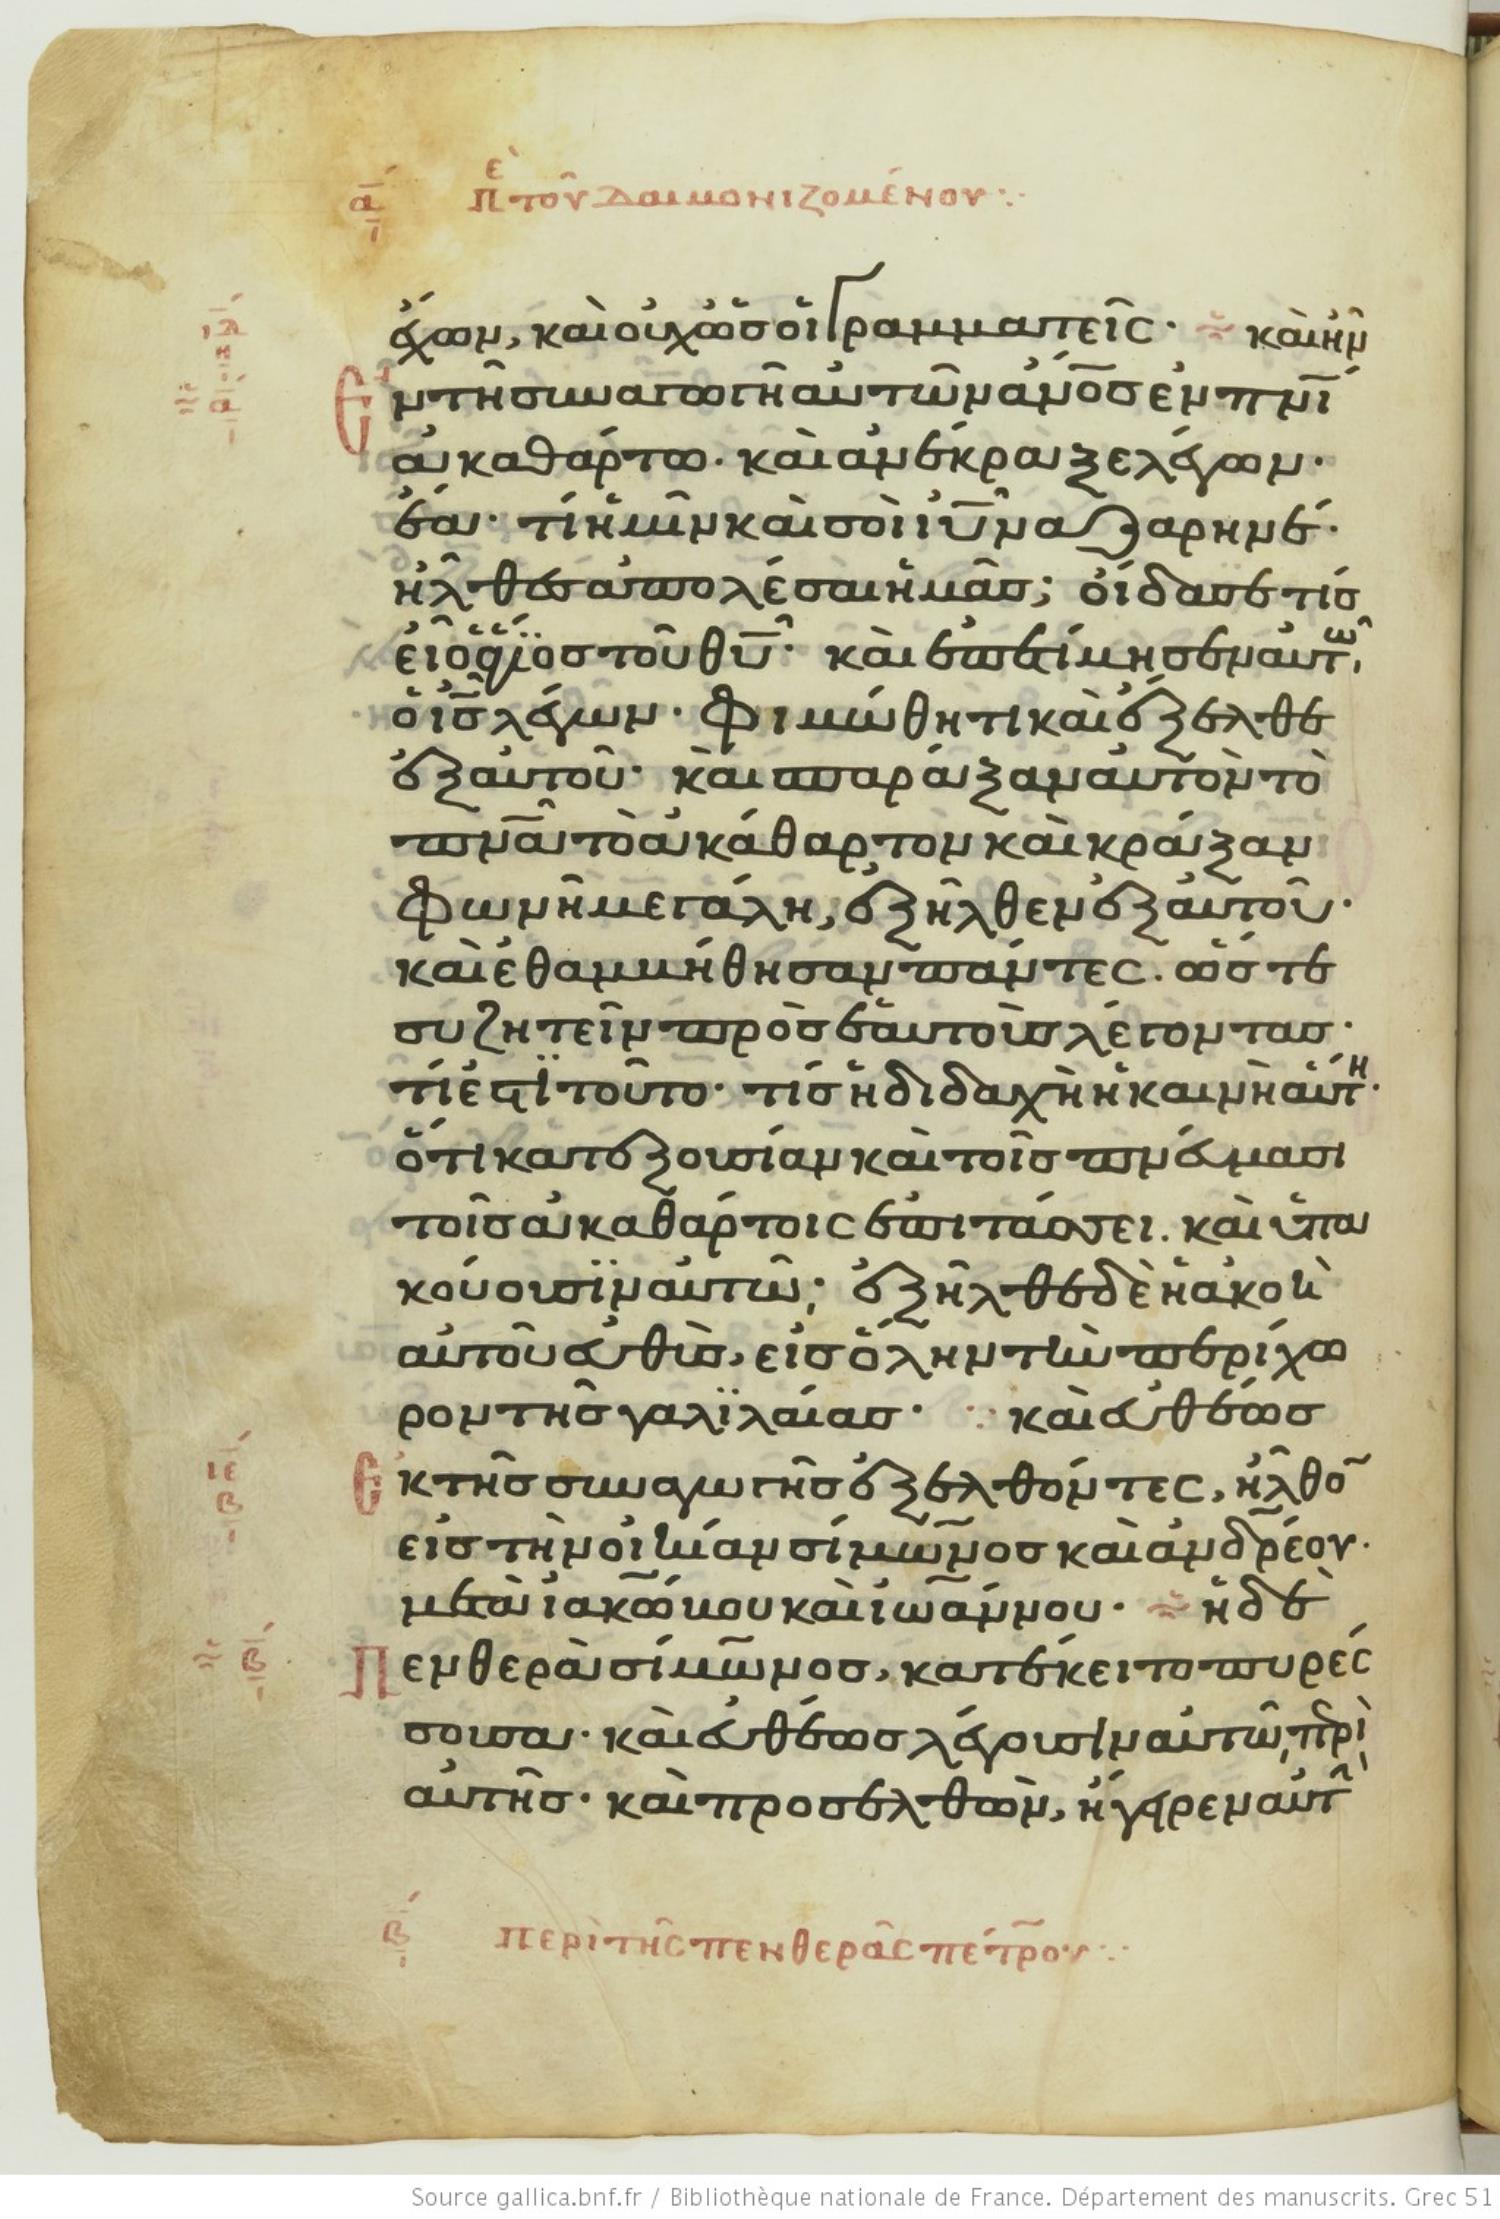 α΄ Πε τοῦ δαιμονιζομένου
έχων, καὶ οὐχ ὡς οἱ γραμματεῖς· καὶ ἦν
Ἐν τῇ συναγωγῇ αὐτῶν ἀνος ἐν πνι
ἀκαθάρτω· καὶ ἀνέκραξε λέγων·
ἔα· τί ἡμῖν καὶ σοὶ ιυ ναζαρηνέ·
ἦλθες ἀπολέσαι ἡμᾶς; οἶδά σε τίς
εἶ ὁ ἅγιος τοῦ θυ· καὶ ἐπετίμησεν αὐτῶ,
ὁ ις λέγων· φιμώθητι καὶ ἔξελθε
ἐξ αὐτοῦ· καὶ σπαράξαν αὐτὸν τὸ
πνα τὸ ἀκάθαρτον καὶ κράξαν
φωνῆ μεγάλη, ἐξῆλθεν ἐξ αὐτοῦ·
καὶ ἐθαμβήθησαν πάντες. ὥστε
συζητεῖν πρὸς ἑαυτοὺς λέγοντας·
τί ἐστὶ τοῦτο· τίς ἡ διδαχὴ ἡ καινὴ αὕτη·
ὅτι κατ' ἐξουσίαν καὶ τοῖς πνεύμασι
τοῖς ἀκαθάρτοις ἐπιτάσσει. καὶ ὑπα
κούουσϊν αὐτῶ; ἐξῆλθε δὲ ἡ ἀκοὴ
αὐτοῦ εὐθὺς, εἰς ὅλην τὴν περίχω
ρον τῆς γαλϊλαίας· καὶ εὐθέως
Ἐκ τῆς συναγωγῆς ἐξελθόντες, ἦλθον
εἰς τὴν οἰκίαν σίμωνος καὶ ἀνδρέου·
μετὰ ἰακώβου καὶ ἰωάννου· ἡ δὲ
Πενθερὰ σίμωνος, κατέκειτο πυρέσ
σουσα· καὶ εὐθέως λέγουσιν αὐτῶ, περὶ
αὐτῆς· καὶ προσελθὼν, ἤγειρεν αὐτὴν
β΄ περὶ τῆς πενθερᾶς πέτρου